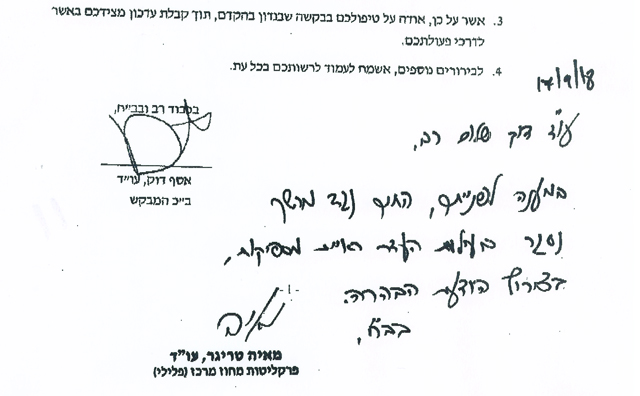 3. אשר על כן, אודה על טיפולכם בבקשה שבנדון בהקדם, תוך קבלת עדכון מצידכם באשר
לדרכי פעולתכם.
4. לבירורים נוספים, אשמח לעמוד לרשותכם בכל עת.
בכבוד רב ובב״ח,
אסף דוק, עו״ד
ב״כ המבקש
עו"ד דוק שלום רב,
במענה לפנייתך, התיק נגד מרשך
נסגר בעילת העדר ראיות מספיקות,
בצירוף הודעת הבהרה.
בב"ח,
-1-
מאיה טריגר, עו"ד
פרקליטות מחוז מרכז (פלילי)